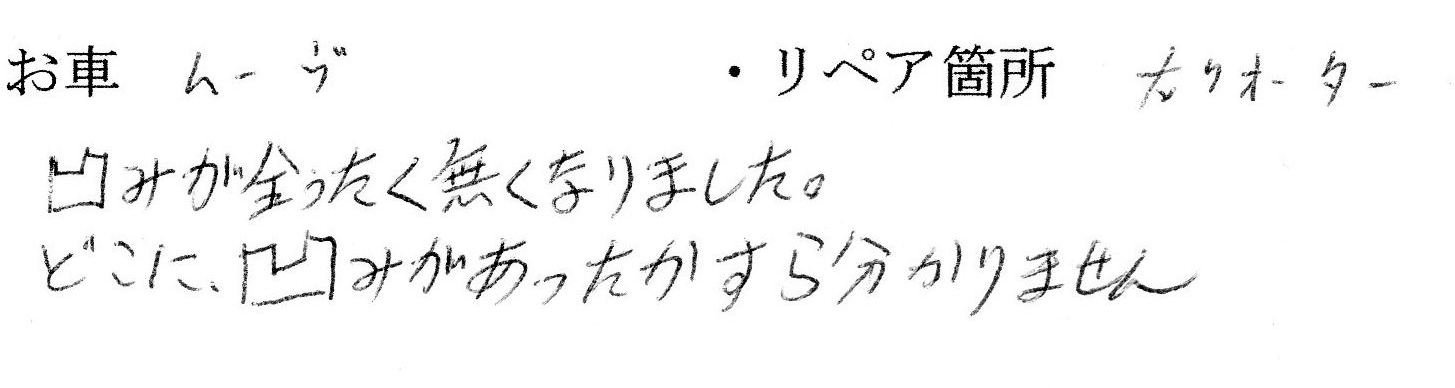 お車 ムーヴ ・リペア箇所 右クオーター
凹みが全ったく無くなりました。
どこに、凹みがあったかすら分かりません